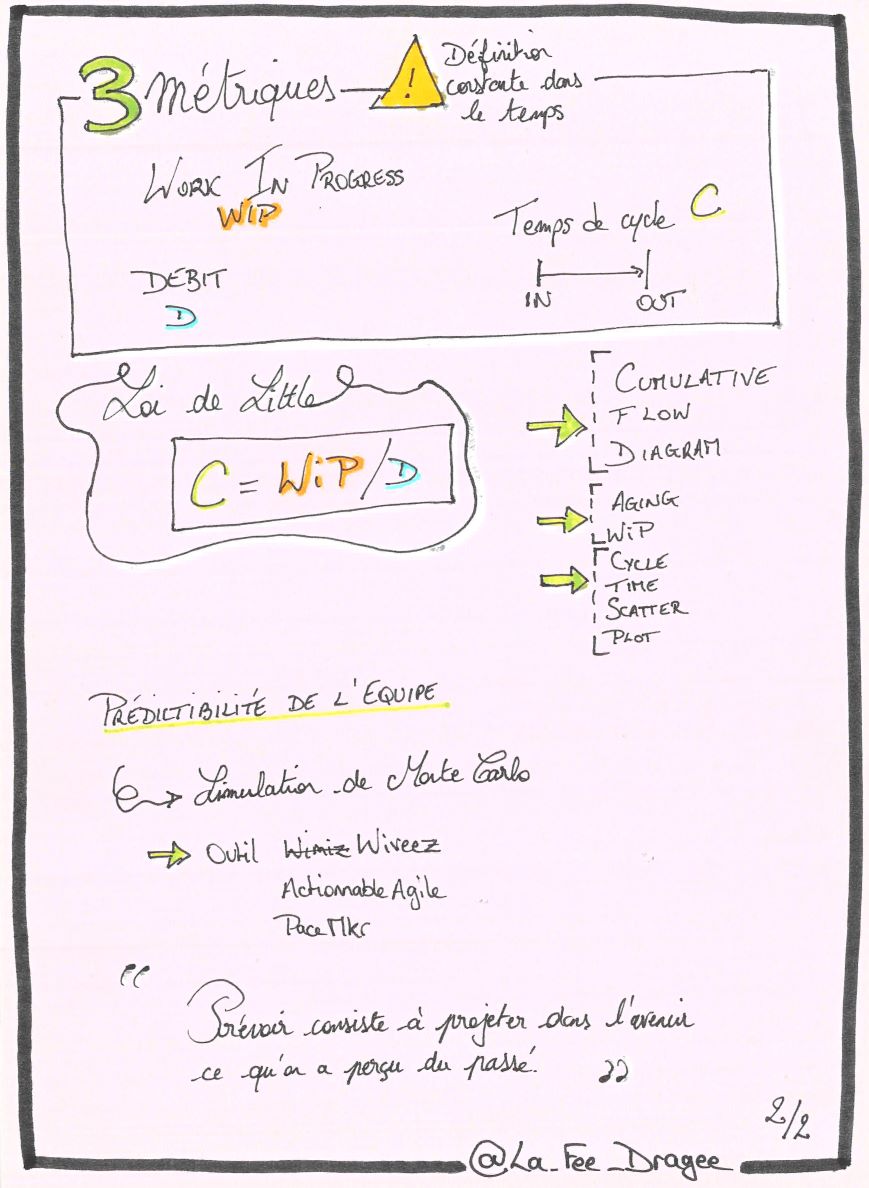 3 Métriques
!
Définition
constante dans
le temps
WORK IN PROGRESS
WIP
Temps de cycle C
DEBIT
D
IN OUT
Loi de Little
C = WiP/D
CUMULATIVE
FLOW
DIAGRAM
AGING
WiP
CYCLE
TIME
SCATTER
PLOT
PRÉDICTIBILITÉ DE L'EQUIPE
Simulation de Monte Carlo
Outil Wimiz Wiveez
Actionnable Agile
PaceMkr
“
Prévoir consiste à projeter dans l'avenir
ce qu'on a perçu du passé. ”
2/2
@La_Fee_Dragee